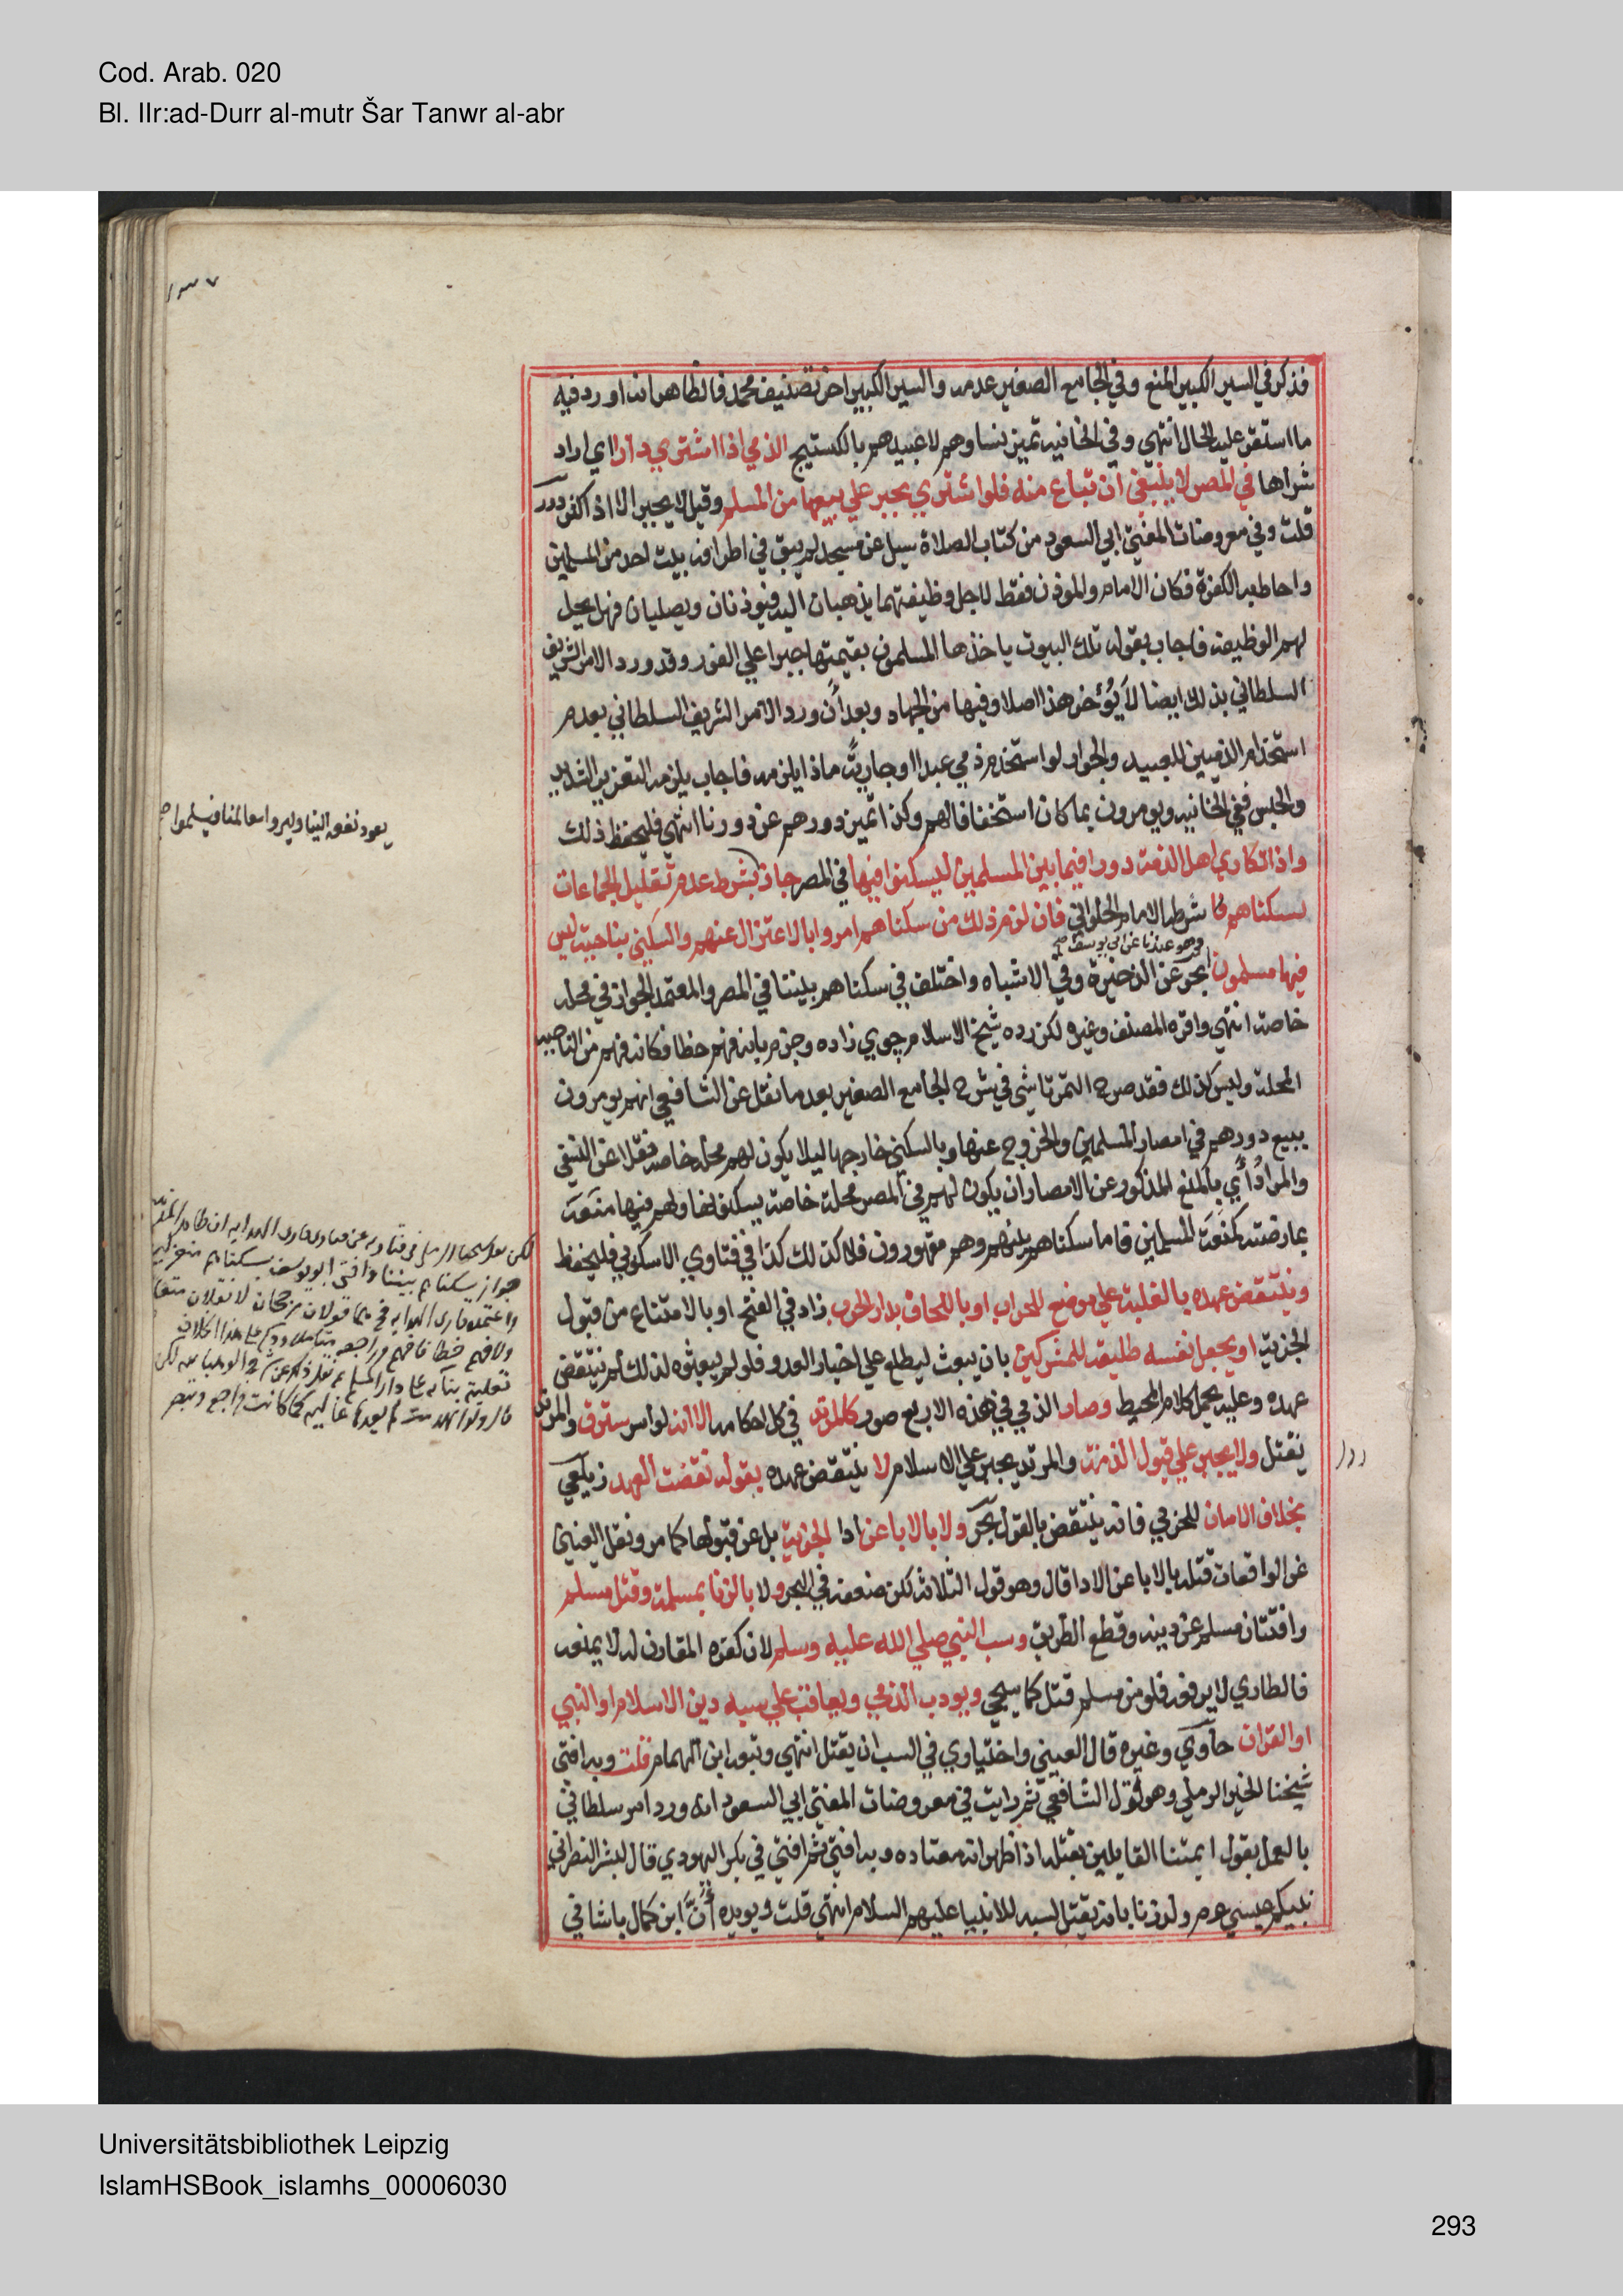 Cod. Arab. 020
Bl. IIr:ad-Durr al-mutr Šar Tanwr al-abr
١٣٧
فذكر في السير الكبير المنع وفي الجامع الصغير عدمه والسير الكبير اخر تصنيف محمد فالظاهر انه اورد فيه
ما استقر عليه الحال انتهي وفي الخانيه تميز نساوهم لا عبيدهم بالكستيج الذمي اذا اشتري دارا اي اراد
شراها في المصر لا ينبغي ان تباع منه فلو اشتري يجبر علي بيعها من المسلم وقيل لا يجبر الا اذا كثر درر
قلت وفي معروضات المفتي ابي السعود من كتاب الصلاة سيل عن مسجد لم يبق في اطرافه بيت احد من المسلمين
واحاط به الكفرة فكان الامام والموذن فقط لاجل وظيفتهما يذهبان اليه فيوذنان ويصليان فهل يحل
لهم الوظيفه فاجاب بقوله تلك البيوت ياخذها المسلمون بقيمتها جبرا علي الفور وقد ورد الامر الشريف
السلطاني بذلك ايضا لا يؤخر هذا اصلا وفيها من الجهاد وبعد أن ورد الامر الشريف السلطاني بعدم
استخدام الذميين للعبيد والجوار لو استخدم ذمي عبدا او جارية ماذا يلزمه فاجاب يلزمه التعزير الشديد
والحبس ففي الخانيه ويومرون بما كان استخفافا لهم وكذا تميز دورهم عن دورنا انتهي فليحفظ ذلك
واذا تكاري اهل الذمة دورا فيما بين المسلمين ليسكنوا فيها في المصر جاز بشرط عدم تقليل الجماعات
لسكناهم شرطه الامام الحلواني فان لزم ذلك من سكناهم امروا بالاعتزال عنهم والسكني بناحية ليس
وهو عندنا عن ابي يوسف
فيها مسلمون بحر عن الذخيرة وفي الاشباه واختلف في سكناهم بيننا في المصر والمعتمد الجواز في محله
خاصة انتهي واقره المصنف وغيره لكن رده شيخ الاسلام جوي زاده وجزم بانه فهم خطا فكانه فهم من الناحيه
المحلة وليس كذلك فقد صرح التمرتاشي في شرح الجامع الصغير بعد ما نقل عن الشافعي انهم يومرون
ببيع دورهم في امصار المسلمين والخروج عنها وبالسكني خارجها ليلا يكون لهم محلة خاصه نقلا عن النسفي
والمراد أي بالمنع المذكور عن الامصار ان يكون لهم في المصر محلة خاصة يسكنونها ولهم فيها منعة
عارضته كمنعة المسلمين فاما سكناهم بينهم وهم مقهورون فلا كذلك كذا في فتاوي الاسكوبي فليحفظ
وينتقض عهده بالغلبة علي موضع للحراب او باللحاق بدار الحرب زاد في الفتح او بالامتناع من قبول
الجزية او يجعل نفسه طليعة للمشركين بان يبعث ليطلع علي اخبار العدو فلو لم يبعثوه لذلك لم ينتقض
عهده وعليه يحمل كلام المحيط وصار الذمي في هذه الاربع صور كالمرتد في كل احكامه الا انه لو اسر يسترق والمرتد
يقتل ولا يجبر علي قبول الذمة والمرتد يجبر علي الاسلام لا ينتقض عهده بقوله نقضت العهد زيلعي
بخلاف الامان للحربي فانه ينتقض بالقول بحر ولا بالابا عن ادا الجزية بل عن قبولها كما مر ونقل العيني
عن الواقعات قتله بالابا عن الادا قال وهو قول الثلاثة لكن ضعفه في البحر ولا بالزنا بمسلمة وقتل مسلم
وافتتان مسلم عن دينه وقطع الطريق وسب النبي صلي الله عليه وسلم لان كفره المقارن له لا يمنعه
فالطاري لا يرفعه فلو من مسلم قتل كما سيجي ويودب الذمي ويعاقب علي سبه دين الاسلام او النبي
او القران حاوي وغيره قال العيني واختياري في السب ان يقتل انتهي وتبعه ابن الهمام قلت وبه افتي
شيخنا الخير الرملي وهو قول الشافعي ثم رايت في معروضات المفتي ابي السعود انه ورد امر سلطاني
بالعمل بقول ايمتنا القايلين بقتله اذا ظهر انه معتاده وبه افتي ثم افتي في بكر اليهودي قال لبشر النصراني
نبيكم عيسي ولد زنا بانه يقتل لسبه للانبيا عليهم السلام انتهي قلت ويويده أنَّ ابن كمال باشا في
يعود نفعه الينا وليروا معالمنا فيسلموا
لكن
جواز سكناهم بيننا وافتي ابو يوسف بسكناهم
Universitätsbibliothek Leipzig
IslamHSBook_islamhs_00006030
293